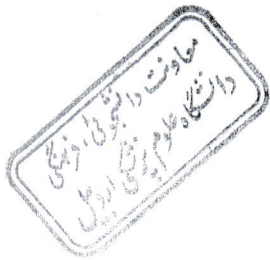 معاونت دانشجوئی و فرهنگی
دانشگاه علوم پزشکی اردبیل